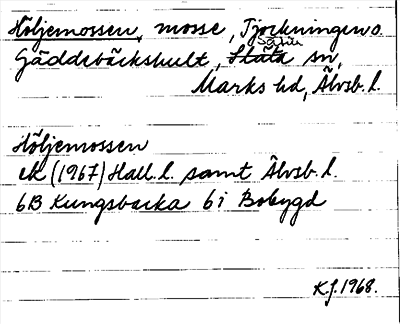 Höljemossen, mosse, Tjockningen o.
Gäddebäckshult, Sätila sn,
Marks hd, Älvsb. l.
Höljemossen
eK (1967) Hall. l. samt Älvsb. l.
6B Kungsbacka 6i Bobygd
K.J. 1968.